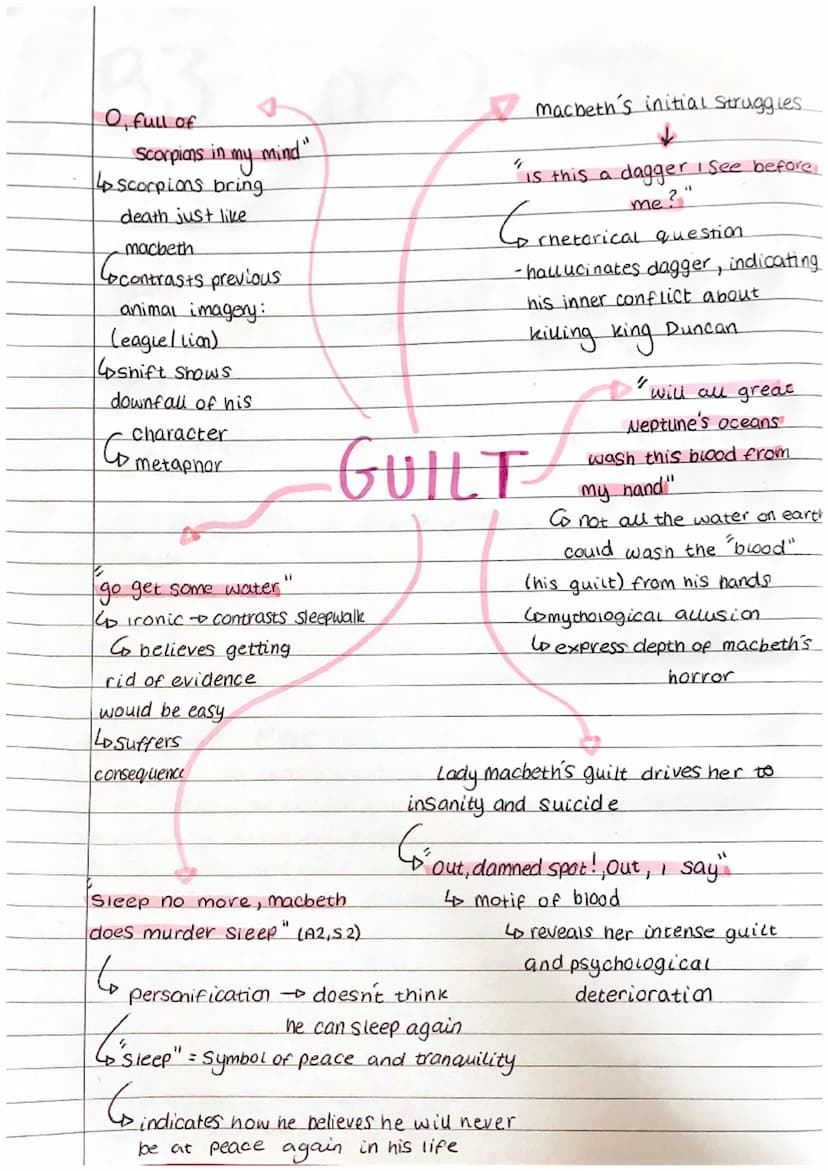 O, full of
scorpions in my mind"
↳ scorpions bring
death just like
macbeth
↳ contrasts previous
animal imagery:
(eagle/lion)
↳ shift shows
downfall of his
character
↳ metaphor
macbeth's initial struggles
↓
"is this a dagger I see before
me?"
↳ rhetorical question
- hallucinates dagger, indicating
his inner conflict about
killing king Duncan
"will all great
Neptune's oceans
wash this blood from
my hand"
↳ not all the water on earth
could wash the "blood"
(his guilt) from his hands
↳ mythological allusion
↳ express depth of macbeth's
horror
GUILT
"go get some water"
↳ ironic → contrasts sleepwalk
↳ believes getting
rid of evidence
would be easy
↳ suffers
consequence
Lady macbeth's guilt drives her to
insanity and suicide
↳ "out, damned spot!, out, I say"
↳ motif of blood
↳ reveals her intense guilt
and psychological
deterioration
"Sleep no more, macbeth
does murder sleep" (A2,S2)
↳ personification → doesn't think
he can sleep again
↳ "sleep" = symbol of peace and tranquility
↳ indicates how he believes he will never
be at peace again in his life